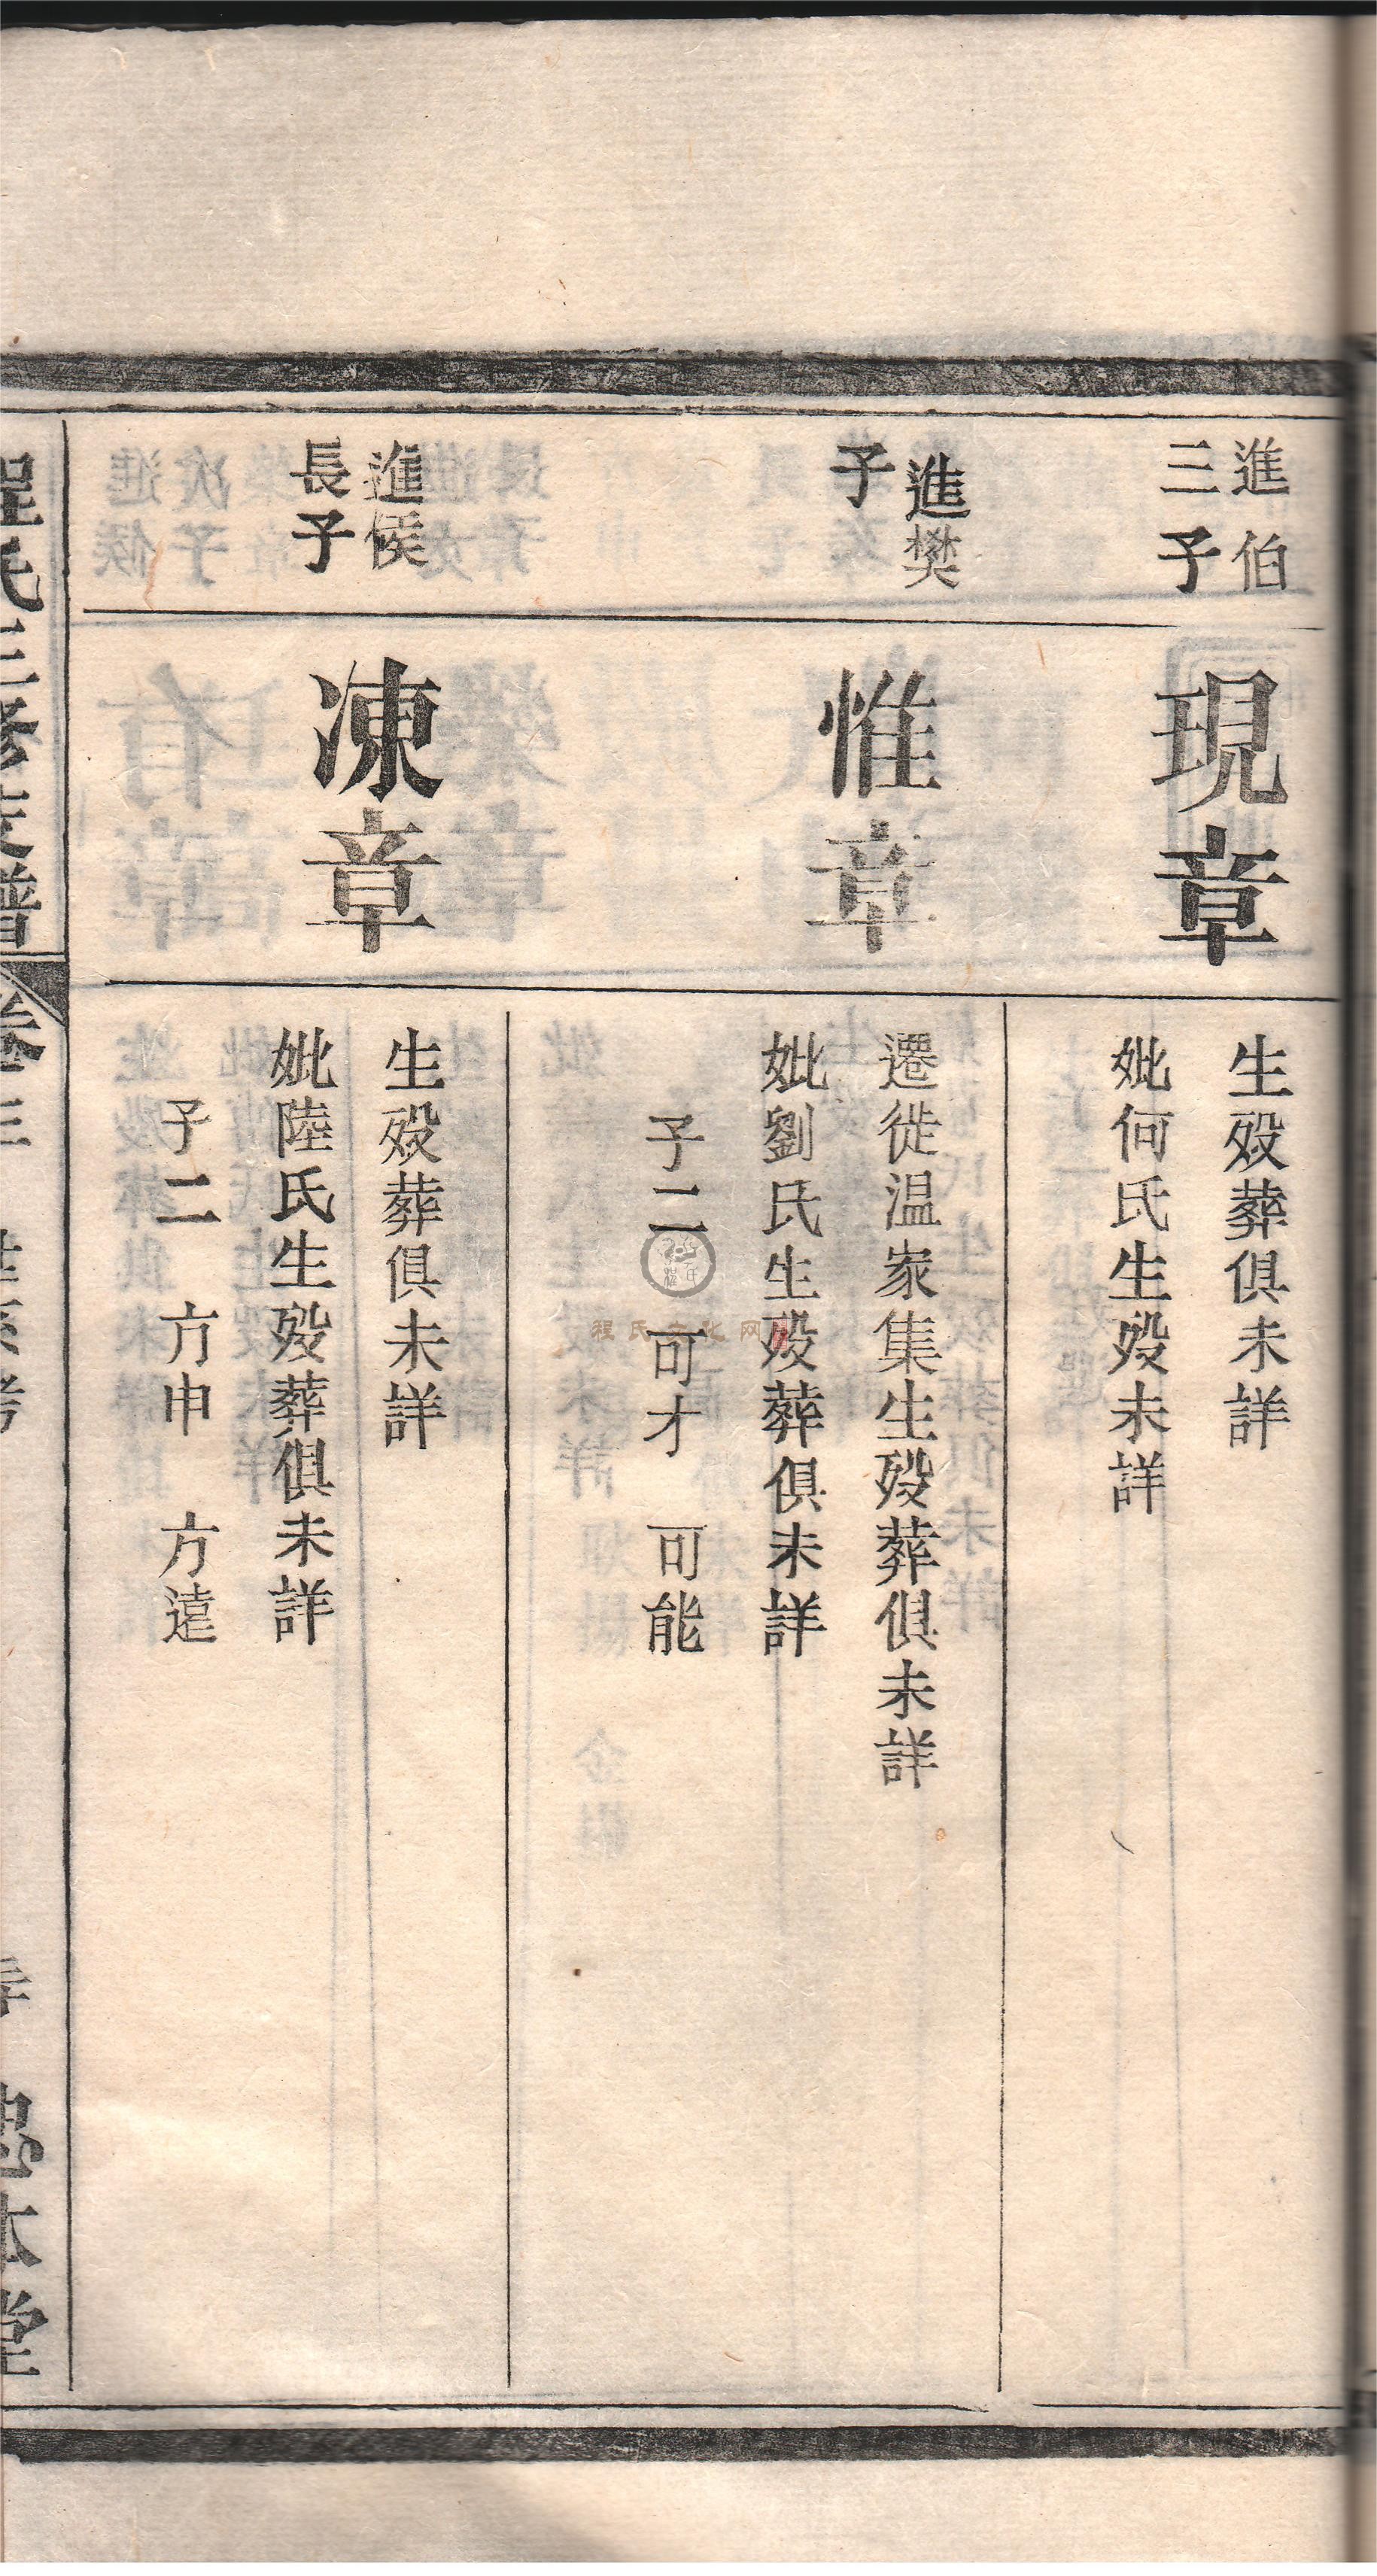 進伯
三子
現章
生殁葬俱未詳
妣何氏生殁未詳
進樊
子
惟章
遷徙温家集生殁葬俱未詳
妣劉氏生殁葬俱未詳
子二 可才 可能
進侯
長子
凍章
生殁葬俱未詳
妣陸氏生殁葬俱未詳
子二 方申 方遠
程氏三修支譜 卷三 忠本堂
程氏文化网